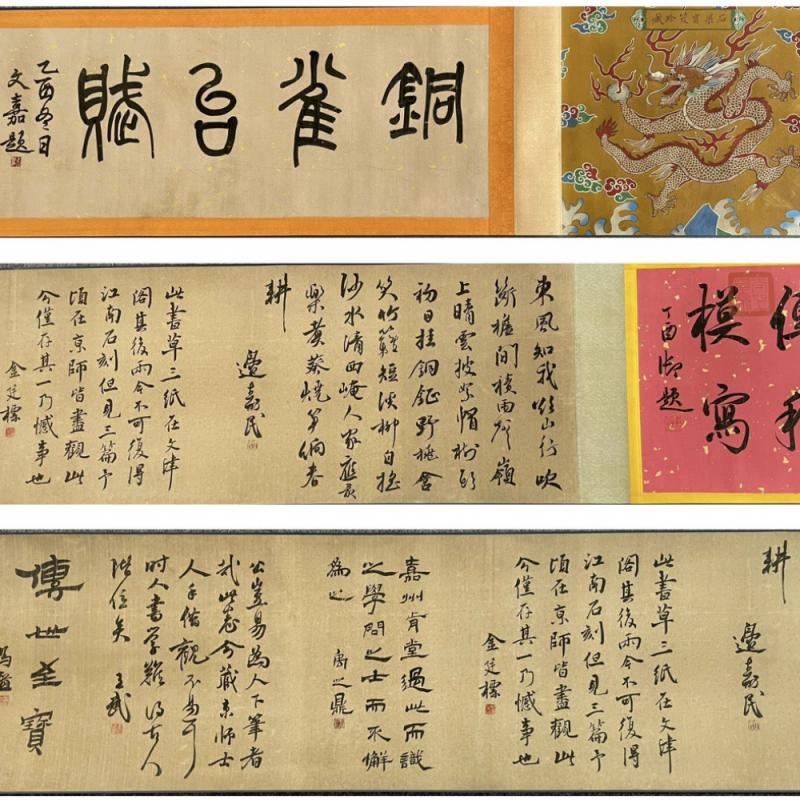 石渠寶笈珍藏
銅雀台賦
乙酉冬日
文嘉題
模寫
丁酉御題
東風知我欲山行吹
斷檐間積雨聲嶺
上晴雲披絮帽樹頭
初日挂銅鉦野桃含
笑竹籬短溪柳自搖
沙水清西崦人家應最
樂煑葵燒筍餉春
耕
邊壽民
此書草三紙在文津
閣其後兩今不可復得
江南石刻但見三篇予
頃在京師皆盡觀此
今僅存其一乃憾事也
金廷標
耕
邊壽民
此書草三紙在文津
閣其後兩今不可復得
江南石刻但見三篇予
頃在京師皆盡觀此
今僅存其一乃憾事也
金廷標
嘉州肯堂過此而識
之學問之士而不懈
為之
禹之鼎
公豈易為人下筆者
哉此卷今藏京師士
人手借觀不易可
時人書學難得古人
階位矣 王武
傳世至寶